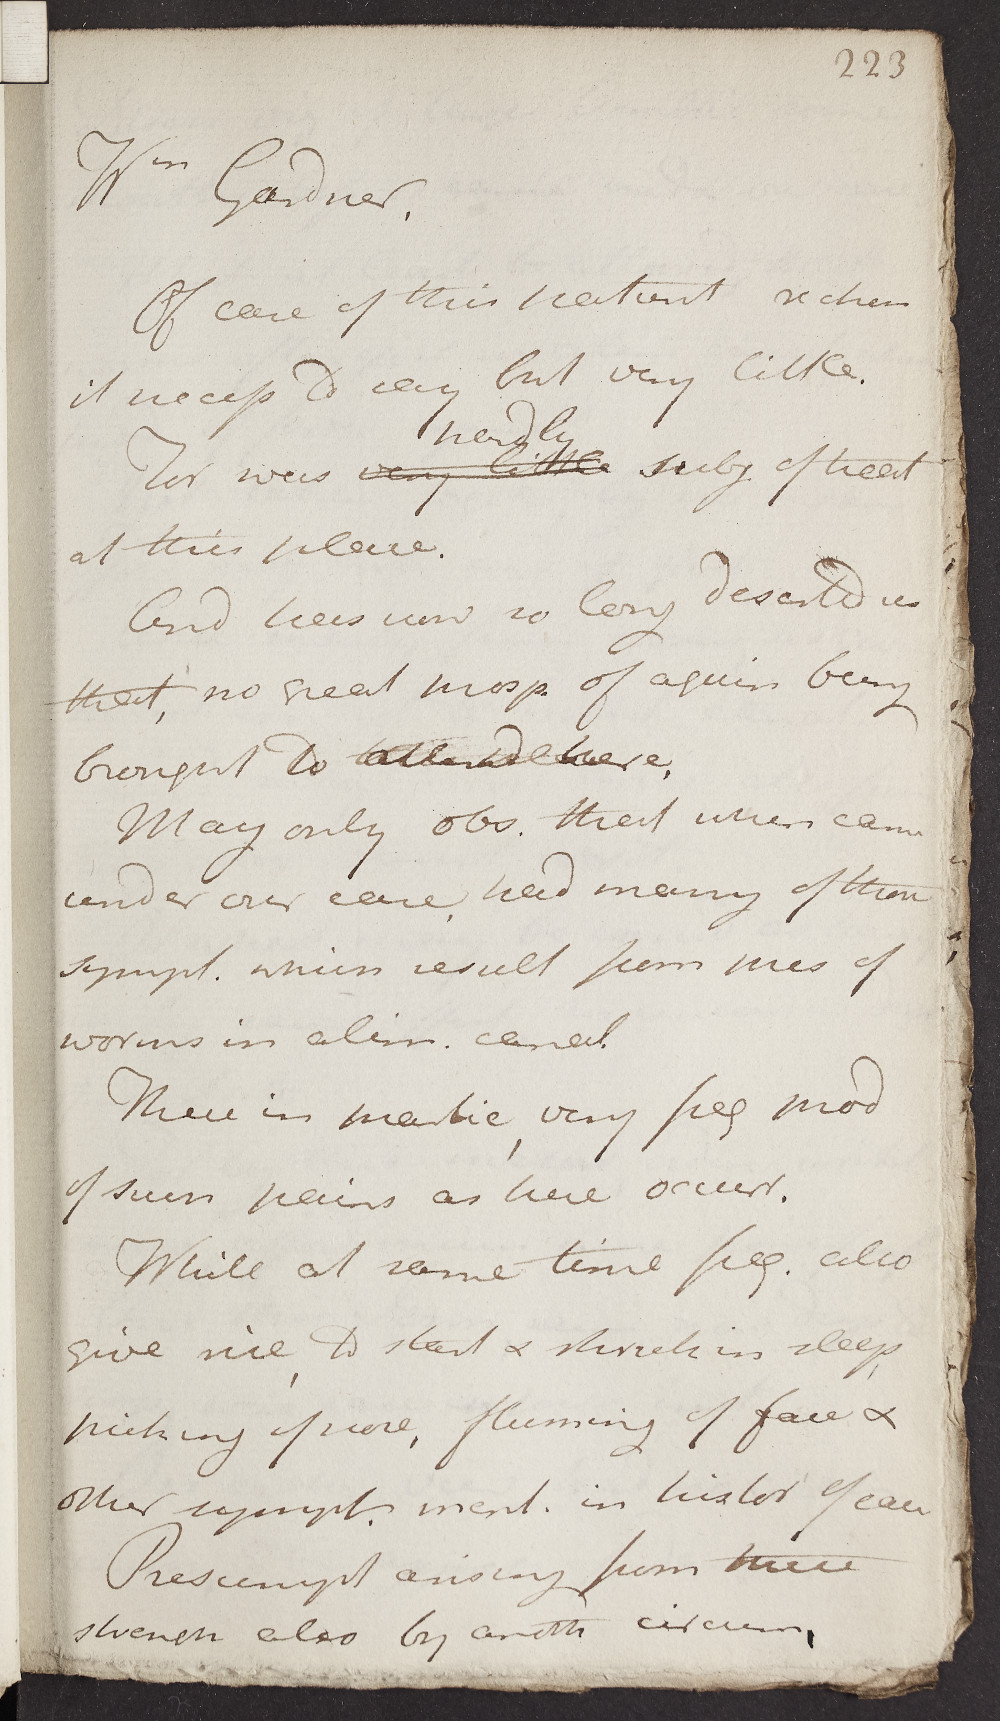 223
Wm Gardner.
Of case of this patient reckon
it necess to say but very little.
hardly
For was very little subj of treat
at this place.
And has now so long deserted us
that, no great prosp. of again being
brought to attend here.
May only obs. that when came
under our care, had many of those
sympt. which result from pres of
worms in alim. canal.
These in partic, very freq prod
of such pains as here occurr.
While at same time freq. also
give rise, to start & shriek in sleep,
picking of nose, flushing of face &
other sympt. ment. in histor of case
Presumpt arising from these
strength also by anoth circum,